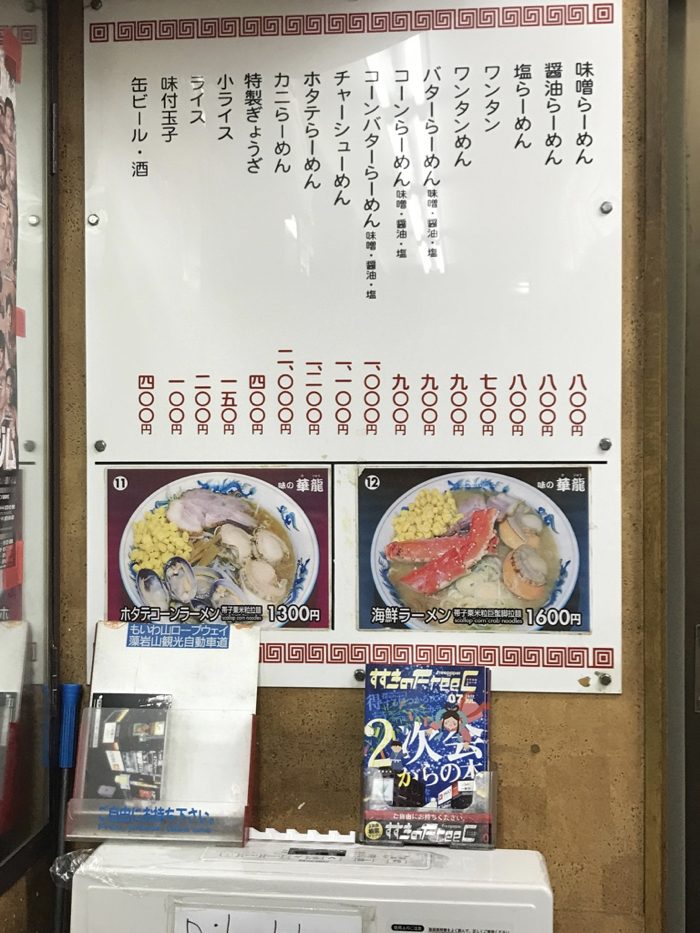 味噌らーめん 八〇〇円
醤油らーめん 八〇〇円
塩らーめん 八〇〇円
ワンタン 七〇〇円
ワンタンめん 九〇〇円
バターらーめん 味噌・醤油・塩 九〇〇円
コーンらーめん 味噌・醤油・塩 九〇〇円
コーンバターらーめん 味噌・醤油・塩 一、〇〇〇円
チャーシューめん 一、一〇〇円
ホタテらーめん 一、二〇〇円
カニらーめん 二、〇〇〇円
特製ぎょうざ 四〇〇円
小ライス 一五〇円
ライス 二〇〇円
味付玉子 一〇〇円
缶ビール・酒 四〇〇円
⑪
味の 華龍
ホタテコーンラーメン 帯子粟米粒拉麺 scallop corn noodles 1300円
⑫
味の 華龍
海鮮ラーメン 帯子粟米粒巨蟹脚拉麺 scallop corn crab noodles 1600円
もいわ山ロープウェイ
藻岩山観光自動車道
ご自由にお持ち下さい
すすきのFreeC
freepaper
07
2次会
からの本
ご自由にお持ちください
すすきのFreeC